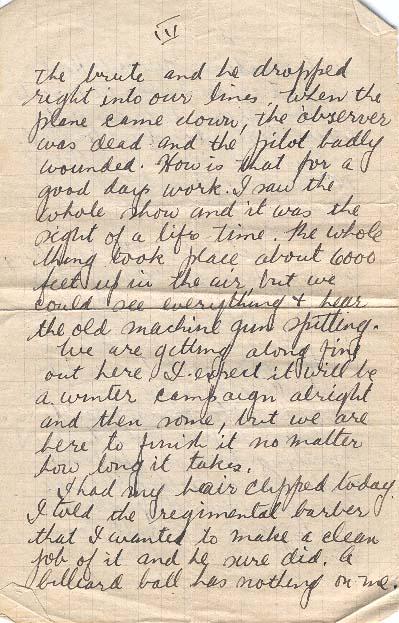 IV
the brute and he dropped
right into our lines. When the
plane came down, the observer
was dead and the pilot badly
wounded. How is that for a
good days work. I saw the
whole show and it was the
sight of a life time. The whole
thing took place about 6000
feet up in the air, but we
could see everything & hear
the old machine gun spitting.
We are getting along fine
out here I expect it will be
a winter campaign alright
and then some, but we are
here to finish it no matter
how long it takes.
I had my hair clipped today.
I told the regimental barber
that I wanted to make a clean
job of it and he sure did. A
billiard ball has nothing on me.